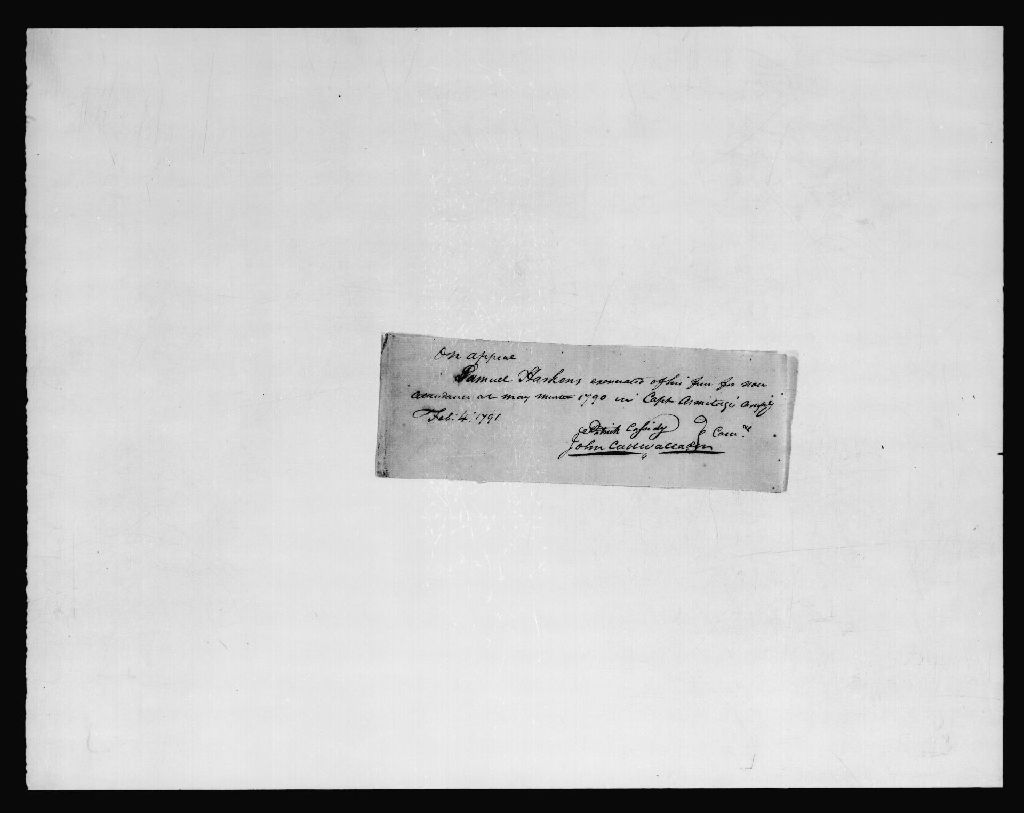 On appeal
Samuel Haskens exonerated of his fine for non
attendance at may muster 1790 in Capt Armitage's Compy
Feb. 4. 1791
Patrick Casidy } Com.rs
John Cadwallader